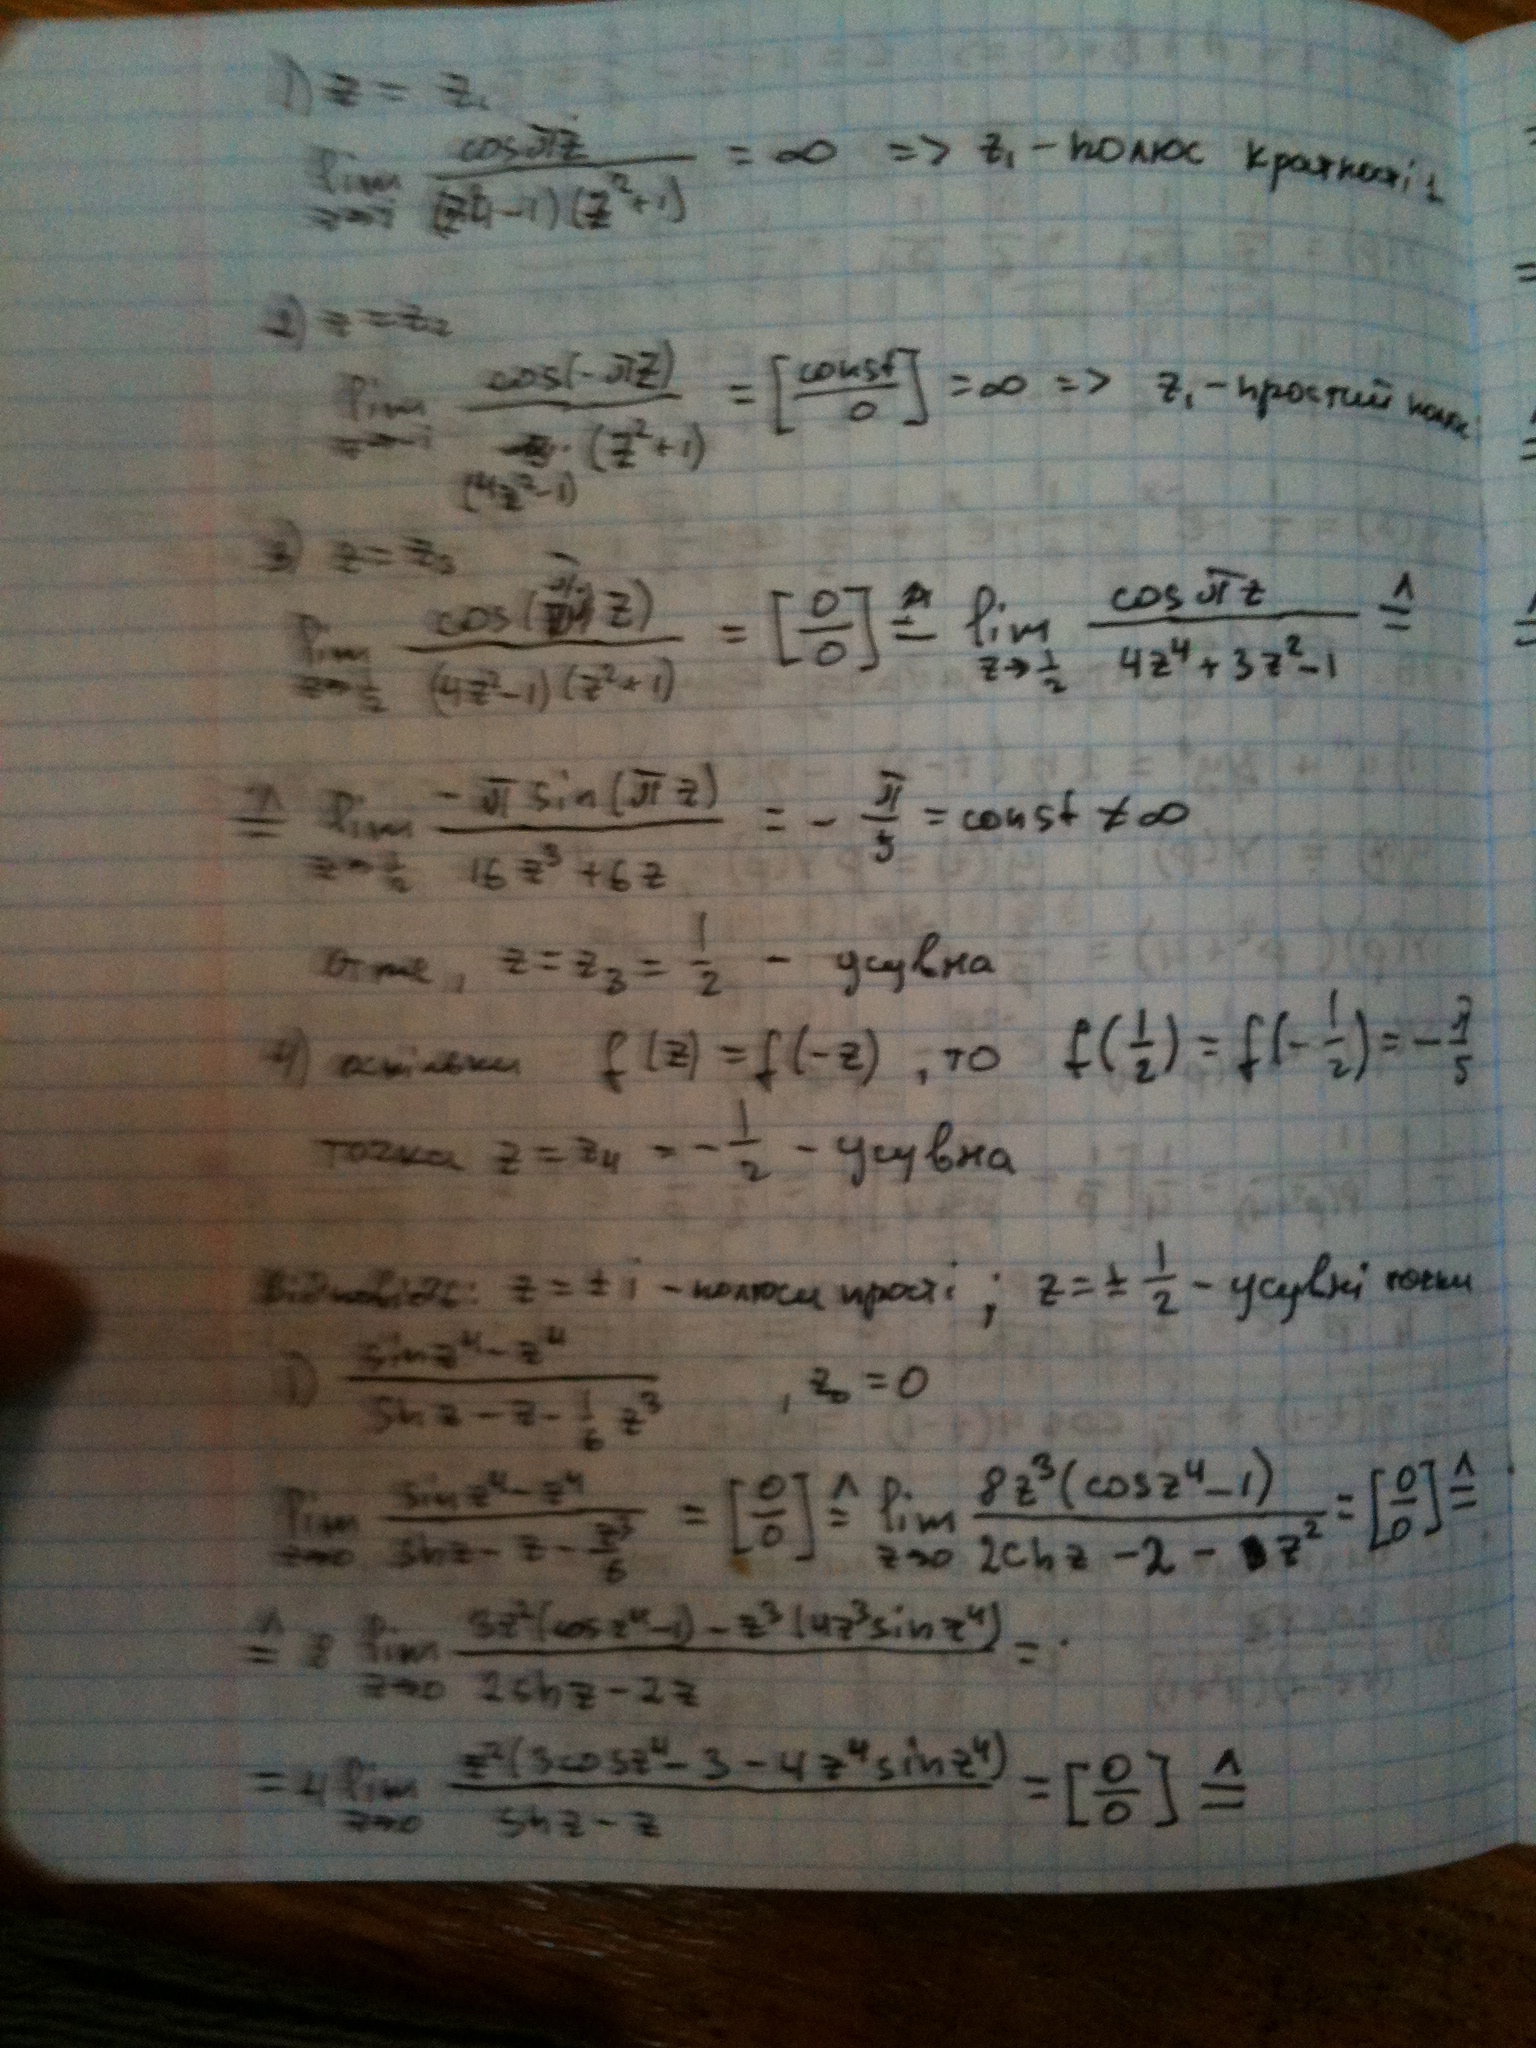 1) z = z₁
lim z→i cos πz / (4z²-1)(z²+1) = ∞ => z₁ - полюс кратності 1
2) z = z₂
lim z→-i cos(-πz) / (4z²-1)(z²+1) = [const/0] = ∞ => z₁ - простий полюс
3) z = z₃
lim z→1/2 cos(πz) / (4z²-1)(z²+1) = [0/0] ≜ lim z→1/2 cos πz / 4z⁴+3z²-1 ≜
≜ lim z→1/2 -π sin(πz) / 16z³+6z = - π/5 = const ≠ ∞
Отже, z = z₃ = 1/2 - усувна
4) оскільки f(z) = f(-z), то f(1/2) = f(-1/2) = - π/5
точка z = z₄ = - 1/2 - усувна
Відповідь: z = ± i - полюси прості; z = ± 1/2 - усувні точки
1) sin z⁴ - z⁴ / sh z - z - 1/6 z³ , z₀ = 0
lim z→0 sin z⁴ - z⁴ / sh z - z - z³/6 = [0/0] ≜ lim z→0 8z³(cos z⁴ - 1) / 2ch z - 2 - z² = [0/0] ≜
≜ 8 lim z→0 3z²(cos z⁴ - 1) - z³(4z³ sin z⁴) / 2sh z - 2z =
= 4 lim z→0 z²(3cos z⁴ - 3 - 4z⁴ sin z⁴) / sh z - z = [0/0] ≜